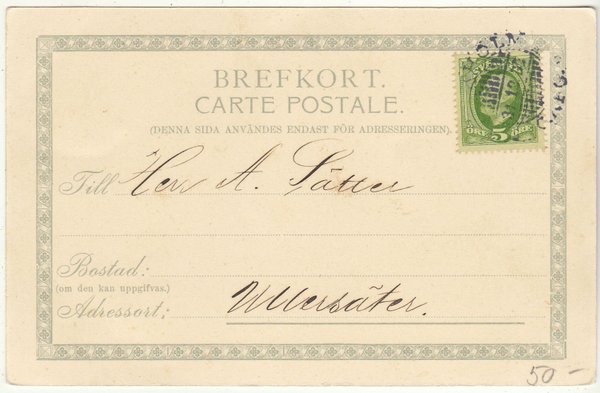 BREFKORT.
CARTE POSTALE.
(DENNA SIDA ANVÄNDES ENDAST FÖR ADRESSERINGEN).
ÖRE 5 ÖRE
Till Herr A. Sätter
Bostad:
(om den kan uppgifvas.)
Adressort: Ullersäter.
50-